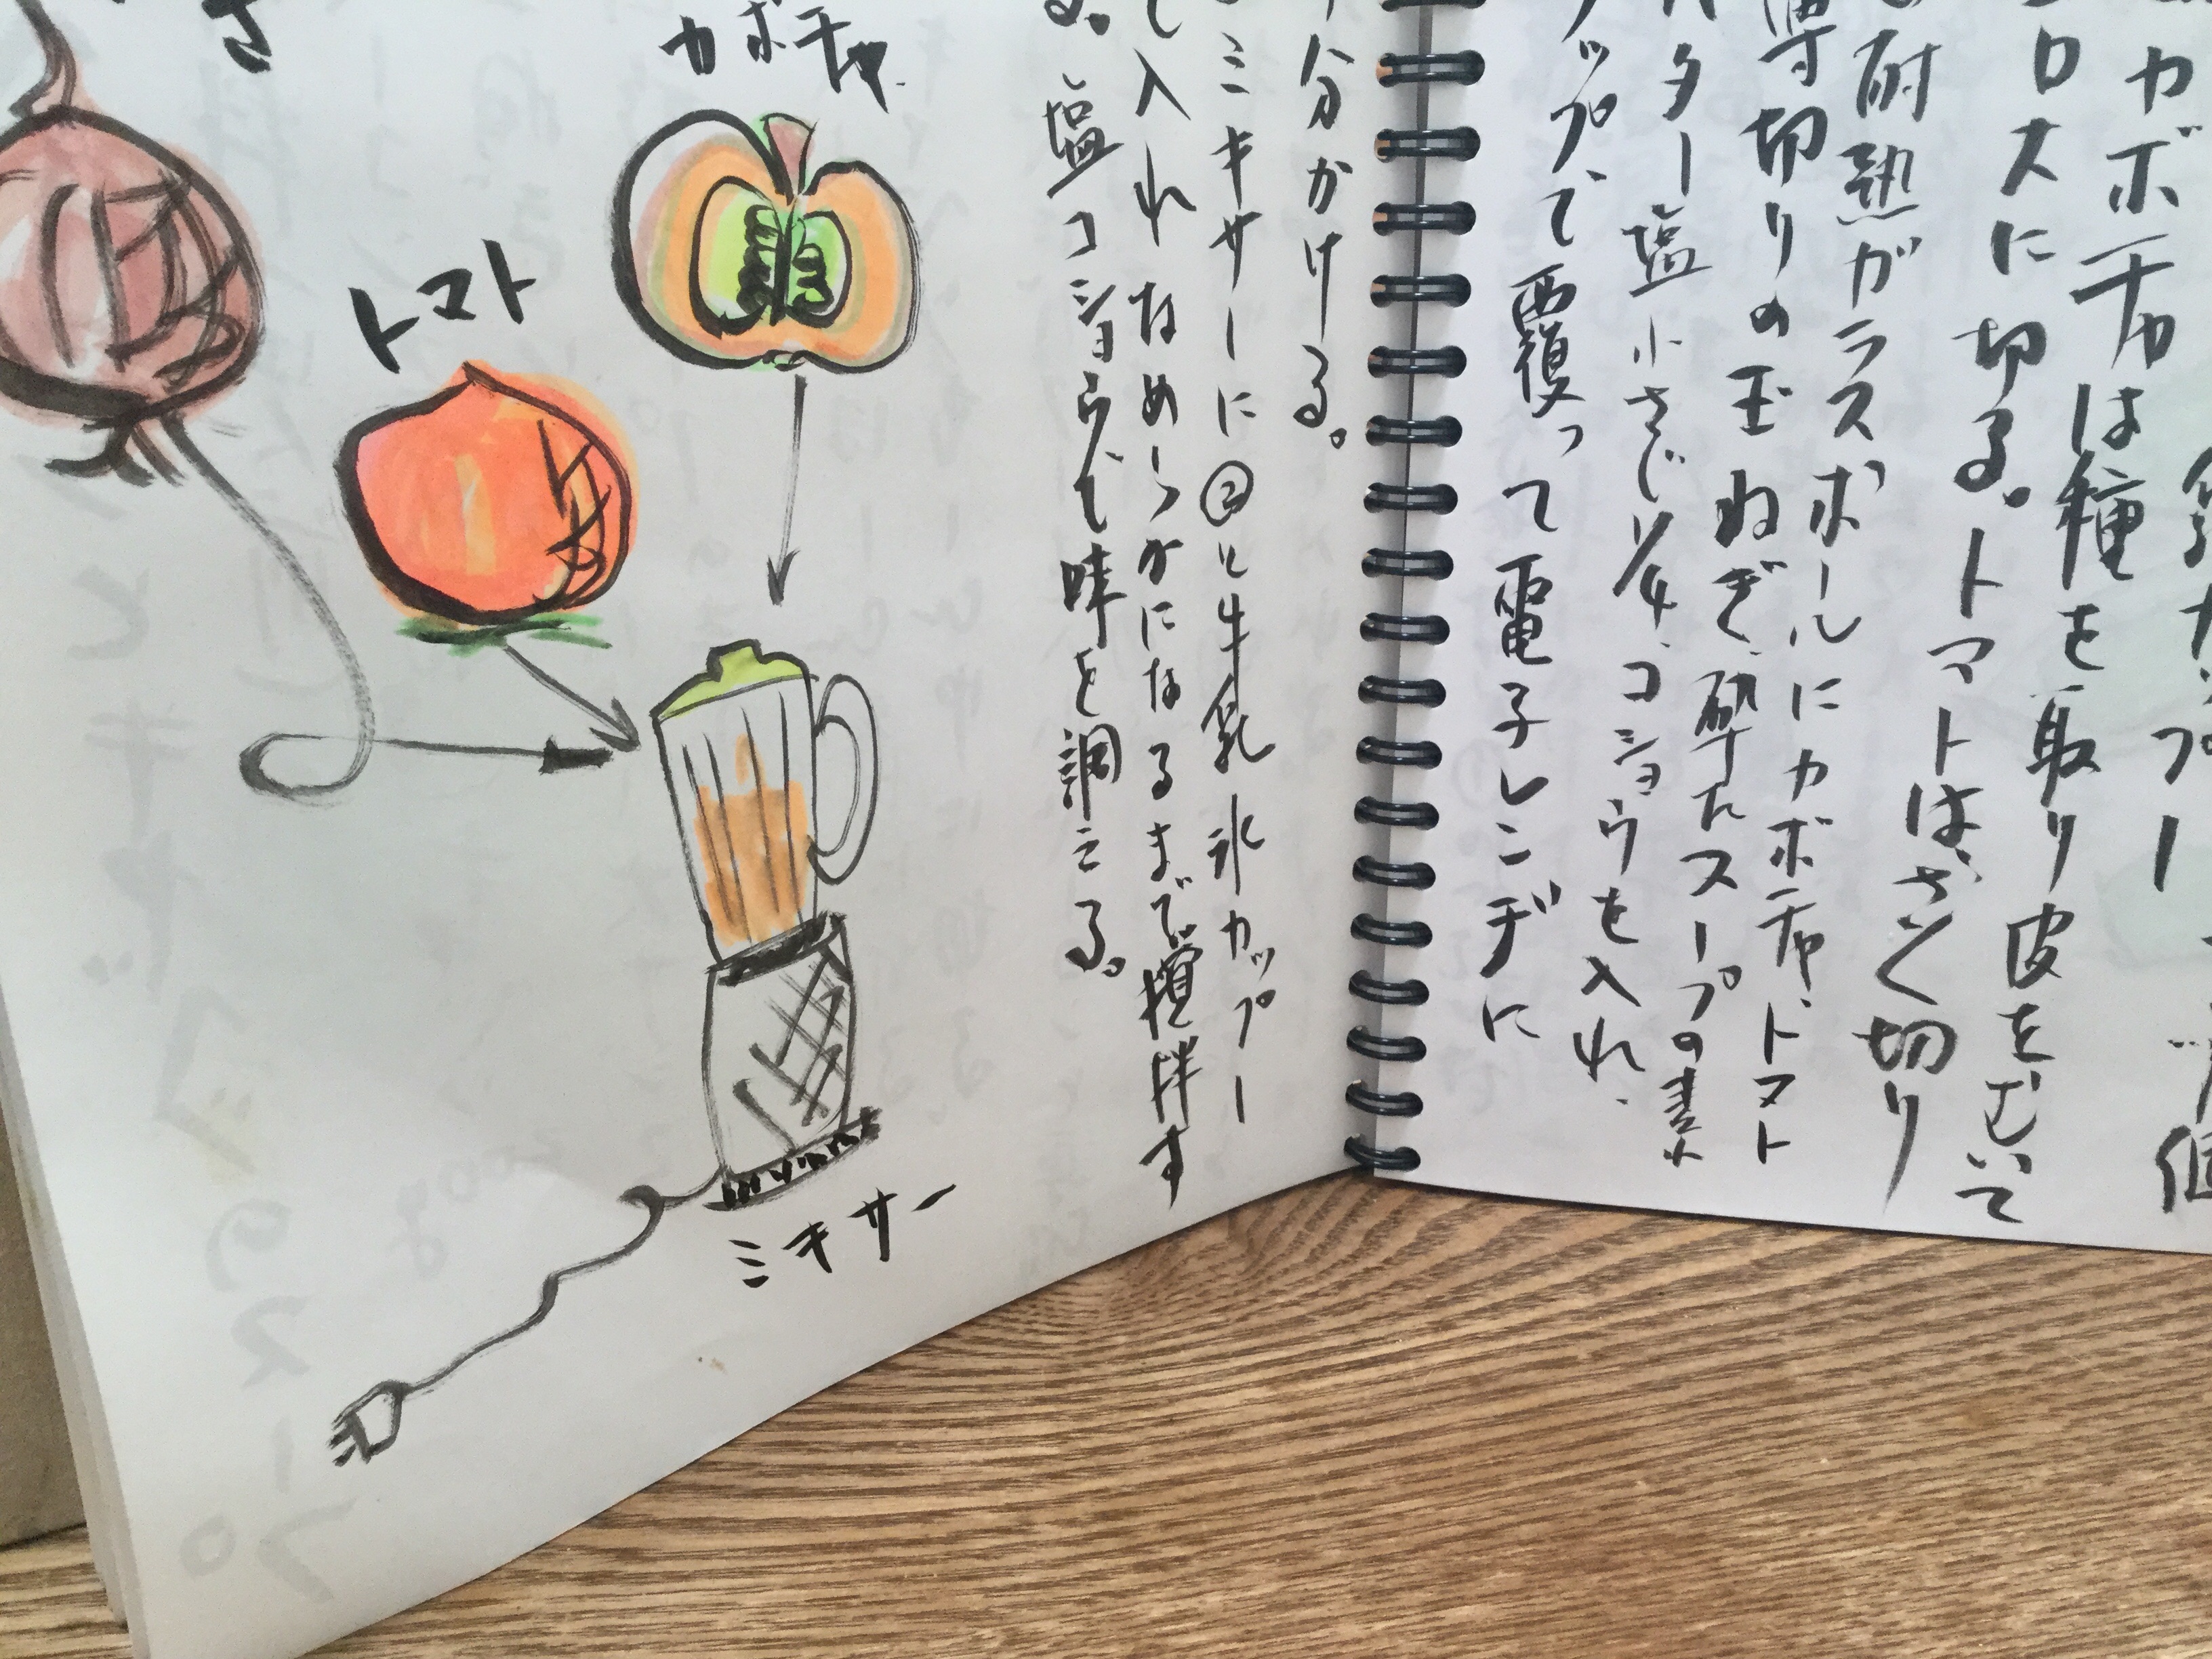 カボチャは種を取り皮をむいて
ロスに切る。トマトはざく切り
耐熱ガラスボールにカボチャ、トマト
薄切りの玉ねぎ、砕たスープの素
バター塩小さじ1/4、コショウを入れ、
ラップで覆って電子レンヂに
分かける。
ミキサーに②と牛乳氷カップー
入れなめらかになるまで攪拌す
る。塩コショウで味を調える。
カボチャ
トマト
ミキサー